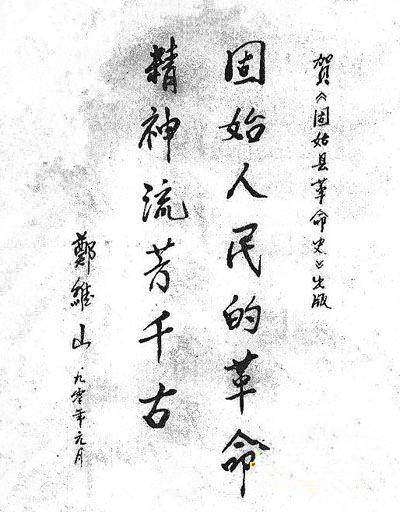 賀《固始县革命史》出版
固始人民的革命
精神流芳千古
鄭維山
九零年元月